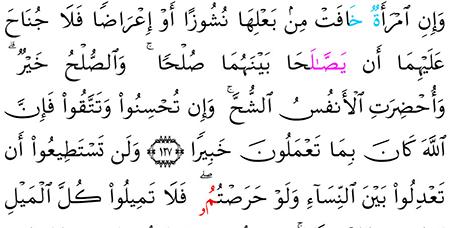 وَإِنِ ٱمْرَأَةٌ خَافَتْ مِنۢ بَعْلِهَا نُشُوزًا أَوْ إِعْرَاضًا فَلَا جُنَاحَ
عَلَيْهِمَا أَن يَصَّـٰلَحَا بَيْنَهُمَا صُلْحًا ۚ وَٱلصُّلْحُ خَيْرٌ ۗ
وَأُحْضِرَتِ ٱلْأَنفُسُ ٱلشُّحَّ ۚ وَإِن تُحْسِنُوا۟ وَتَتَّقُوا۟ فَإِنَّ
ٱللَّهَ كَانَ بِمَا تَعْمَلُونَ خَبِيرًا ١٢٧ وَلَن تَسْتَطِيعُوٓا۟ أَن
تَعْدِلُوا۟ بَيْنَ ٱلنِّسَآءِ وَلَوْ حَرَصْتُمُۥ ۖ فَلَا تَمِيلُوا۟ كُلَّ ٱلْمَيْلِ